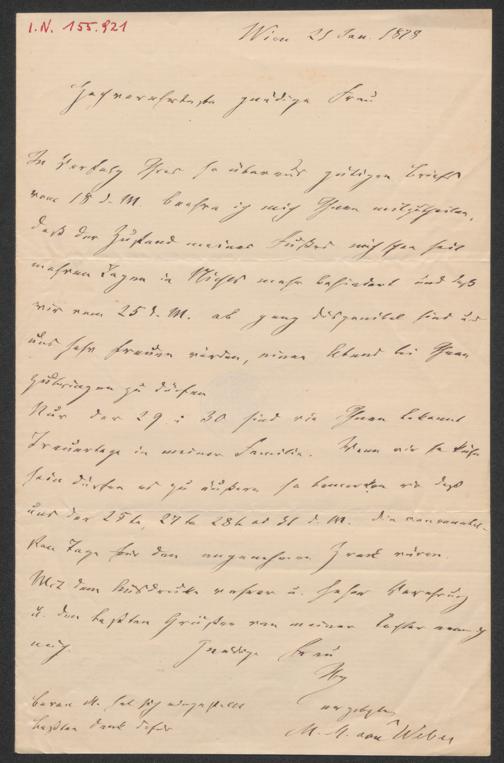 I.N. 155.921
Wien 21 Jan. 1879
Hochverehrteste gnädige Frau
In Verfolg Ihres so überaus gütigen Briefs
vom 18 d. M. beehre ich mich Ihnen mitzutheilen,
daß der Zustand meines Fußes mich schon seit
mehren Tagen in Nichts mehr behindert und daß
wir vom 25 d. M. ab ganz disponibel sind und
uns sehr freuen würden, einen Abend bei Ihnen
zubringen zu dürfen
Nur der 29 u 30 sind wie Ihnen bekannt
Trauertage in meiner Familie. Wenn wir so kühn
sein dürfen es zu äußern so bemerken wir daß
uns der 25te, 27te 28te od 31 d. M. die
Tage für den angenehmen Zweck wären.
Mit dem Ausdrucke wahrer u. hoher Verehrung
u. den besten Grüßen von meiner Tochter
mich. Gnädige Frau
Ihr
ergebster
M. M. von Weber
Baron M. hat sich eingestellt
besten Dank dafür